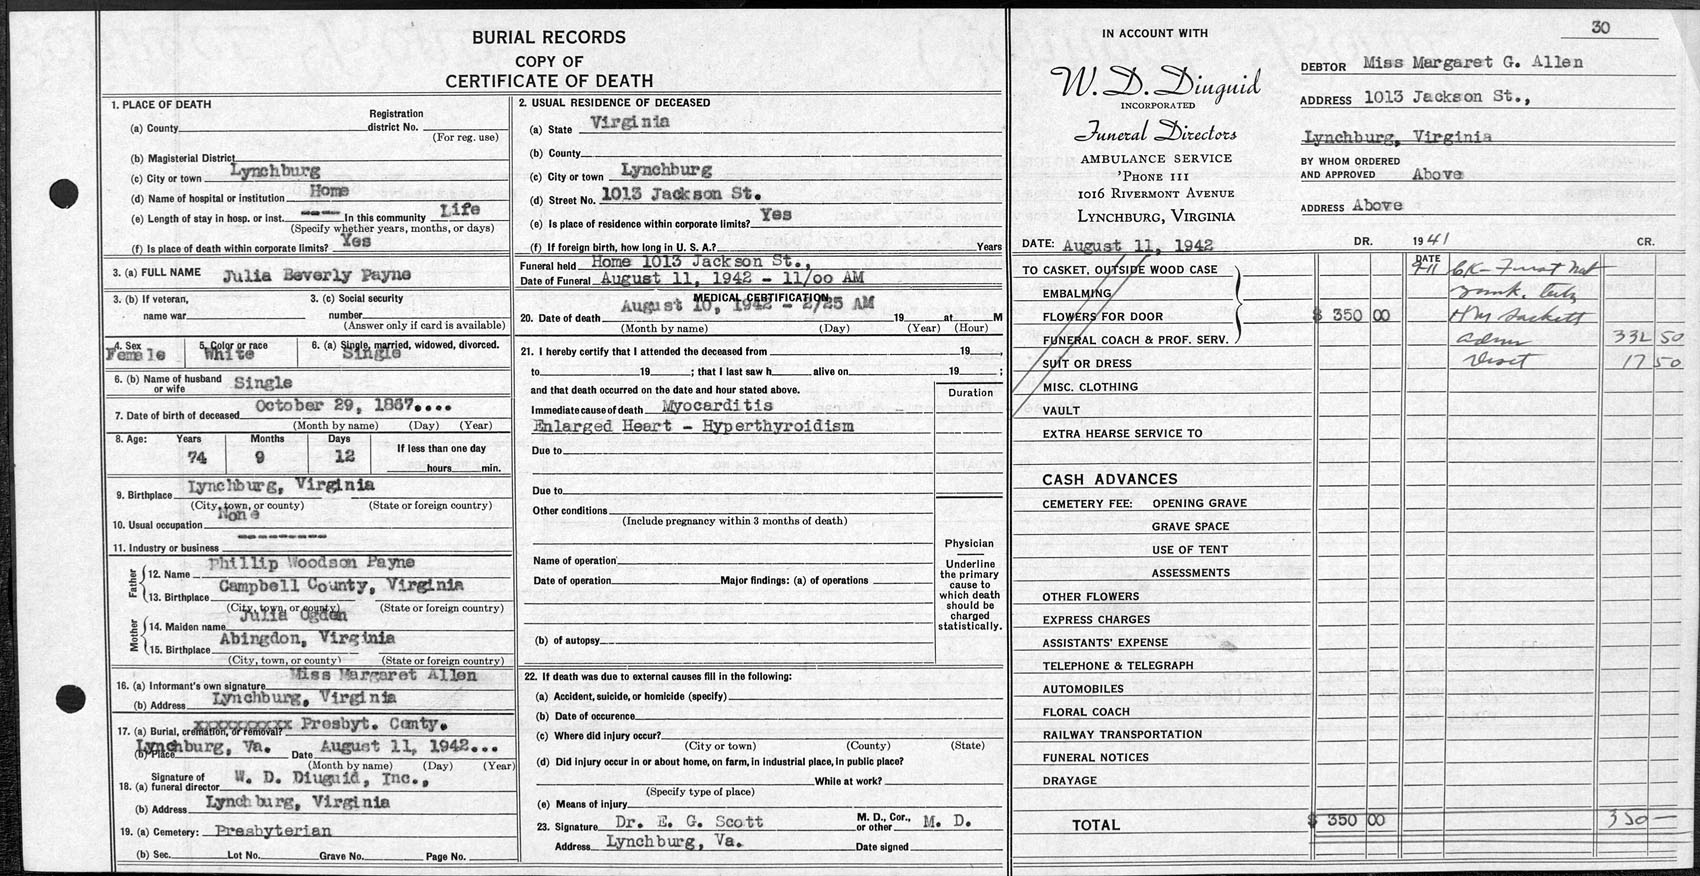 BURIAL RECORDS
COPY OF
CERTIFICATE OF DEATH
1. PLACE OF DEATH
(a) County
Registration district No.
(For reg. use)
(b) Magisterial District
(c) City or town Lynchburg
(d) Name of hospital or institution Home
(e) Length of stay in hosp. or inst. ---- In this community Life
(Specify whether years, months, or days)
(f) Is place of death within corporate limits? Yes
3. (a) FULL NAME Julia Beverly Payne
3. (b) If veteran, name war
3. (c) Social security number
(Answer only if card is available)
4. Sex Female
5. Color or race White
6. (a) Single, married, widowed, divorced. Single
6. (b) Name of husband or wife Single
7. Date of birth of deceased October 29, 1867....
(Month by name) (Day) (Year)
8. Age: Years Months Days
74 9 12
If less than one day
hours min.
9. Birthplace Lynchburg, Virginia
(City, town, or county) (State or foreign country)
10. Usual occupation None
11. Industry or business ---------
Father
12. Name Phillip Woodson Payne
13. Birthplace Campbell County, Virginia
(City, town, or county) (State or foreign country)
Mother
14. Maiden name Julia Ogden
15. Birthplace Abingdon, Virginia
(City, town, or county) (State or foreign country)
16. (a) Informant's own signature Miss Margaret Allen
(b) Address Lynchburg, Virginia
17. (a) Burial, cremation, or removal? xxxxxxxxxx Presbyt. Cemty.
(b) Place Lynchburg, Va. Date August 11, 1942...
(Month by name) (Day) (Year)
18. (a) Signature of funeral director W. D. Diuguid, Inc.,
(b) Address Lynchburg, Virginia
19. (a) Cemetery: Presbyterian
(b) Sec. Lot No. Grave No. Page No.
2. USUAL RESIDENCE OF DECEASED
(a) State Virginia
(b) County
(c) City or town Lynchburg
(d) Street No. 1013 Jackson St.
(e) Is place of residence within corporate limits? Yes
(f) If foreign birth, how long in U. S. A.? Years
Funeral held Home 1013 Jackson St.,
Date of Funeral August 11, 1942 - 11/00 AM
MEDICAL CERTIFICATION
20. Date of death August 10, 1942 - 2/25 AM 19 at M
(Month by name) (Day) (Year) (Hour)
21. I hereby certify that I attended the deceased from 19 ,
to 19 ; that I last saw h alive on 19 ;
and that death occurred on the date and hour stated above.
Duration
Immediate cause of death Myocarditis
Enlarged Heart - Hyperthyroidism
Due to
Due to
Other conditions
(Include pregnancy within 3 months of death)
Name of operation
Date of operation Major findings: (a) of operations
(b) of autopsy
Physician
Underline the primary cause to which death should be charged statistically.
22. If death was due to external causes fill in the following:
(a) Accident, suicide, or homicide (specify)
(b) Date of occurence
(c) Where did injury occur?
(City or town) (County) (State)
(d) Did injury occur in or about home, on farm, in industrial place, in public place?
While at work?
(Specify type of place)
(e) Means of injury
23. Signature Dr. E. G. Scott M. D., Cor., or other M. D.
Address Lynchburg, Va. Date signed
30
IN ACCOUNT WITH
W. D. Diuguid
INCORPORATED
Funeral Directors
AMBULANCE SERVICE
'PHONE 111
1016 RIVERMONT AVENUE
LYNCHBURG, VIRGINIA
DEBTOR Miss Margaret G. Allen
ADDRESS 1013 Jackson St.,
Lynchburg, Virginia
BY WHOM ORDERED AND APPROVED Above
ADDRESS Above
DATE: August 11, 1942 DR. 1941 CR.
DATE
TO CASKET, OUTSIDE WOOD CASE 9-11 CK- First Nat
EMBALMING
FLOWERS FOR DOOR $ 350 00 H M Sackett
FUNERAL COACH & PROF. SERV. Adm 332 50
SUIT OR DRESS 17 50
MISC. CLOTHING
VAULT
EXTRA HEARSE SERVICE TO
CASH ADVANCES
CEMETERY FEE: OPENING GRAVE
GRAVE SPACE
USE OF TENT
ASSESSMENTS
OTHER FLOWERS
EXPRESS CHARGES
ASSISTANTS' EXPENSE
TELEPHONE & TELEGRAPH
AUTOMOBILES
FLORAL COACH
RAILWAY TRANSPORTATION
FUNERAL NOTICES
DRAYAGE
TOTAL $ 350 00 350 —